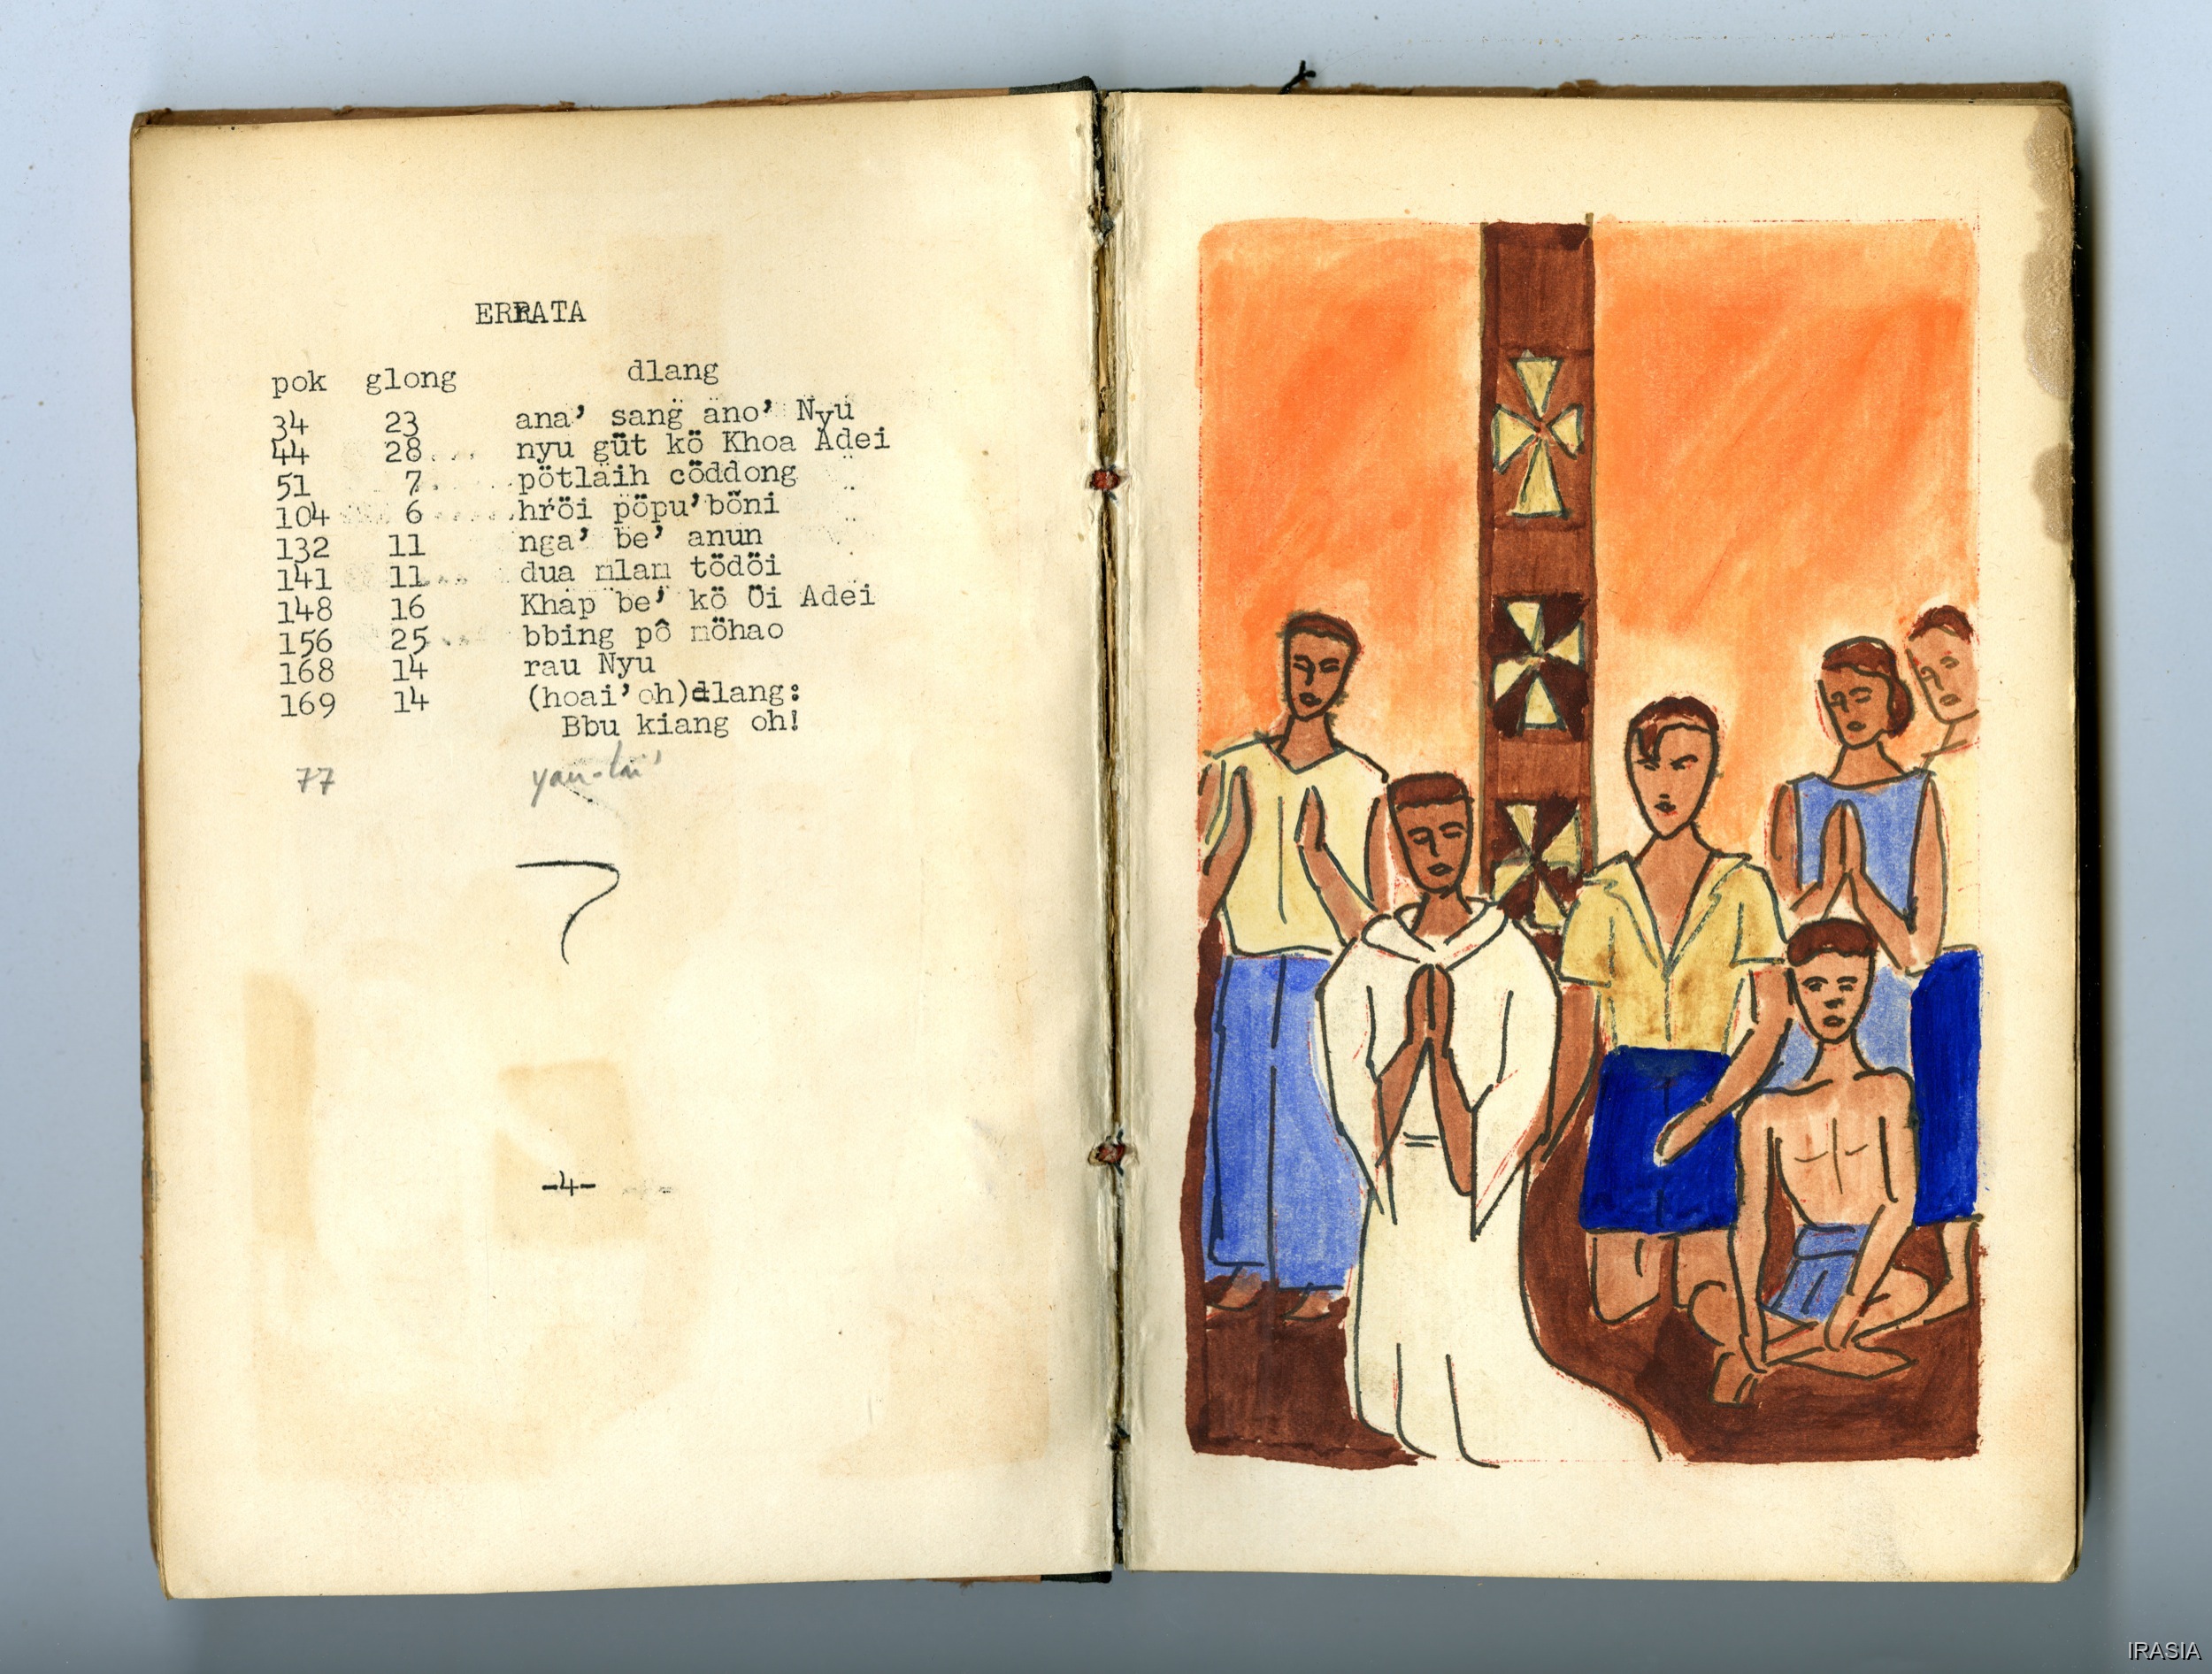 ERRATA
pok glong dlang
34 23 ana' sang ano' Nyu
44 28... nyu güt kö Khoa Adei
51 7. pötlaih cöddong
104 6 hröi pöpu'böni
132 11 nga' be' anun
141 11... dua nlan tödöi
148 16 Khap be' kö Öi Adei
156 25... bbing pô nöhao
168 14 rau Nyu
169 14 (hoai'oh)dlang:
Bbu kiang oh!
77
-4-
IRASIA